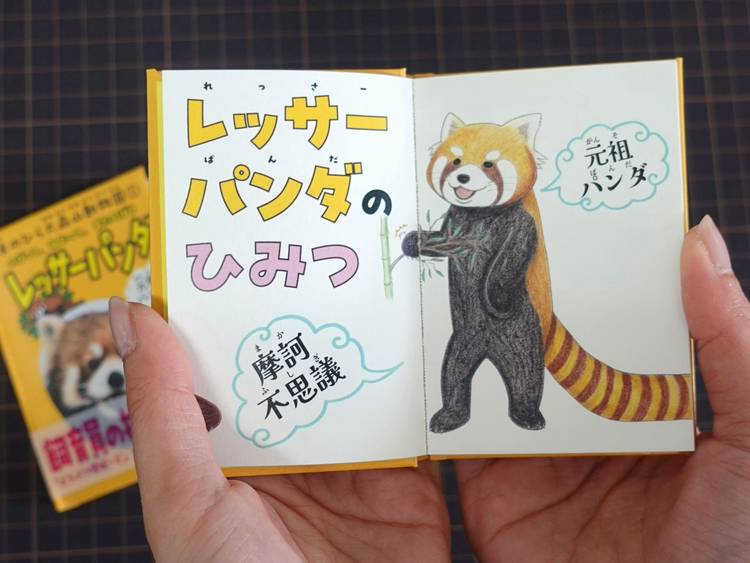 れっさー
レッサー
ぱんだ
パンダの
ひみつ
まか
摩訶
ふしぎ
不思議
がんそ
元祖
ぱんだ
パンダ
レッサーパンダ
飼育員の